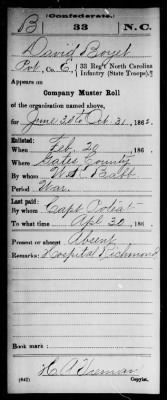 (Confederate.)
B 33 N.C.
David Boyet
Pvt, Co. E, 33 Reg't North Carolina
Infantry (State Troops).
Appears on
Company Muster Roll
of the organization named above,
for June 30 to Oct. 31, 1862.
Enlisted:
When Feb. 20, 186
Where Gates County
By whom W. P. Babb
Period War.
Last paid:
By whom Capt.
To what time Apl. 30, 186
Present or absent Absent
Remarks: Hospital Richmond
Book mark:
(642) Copyist.